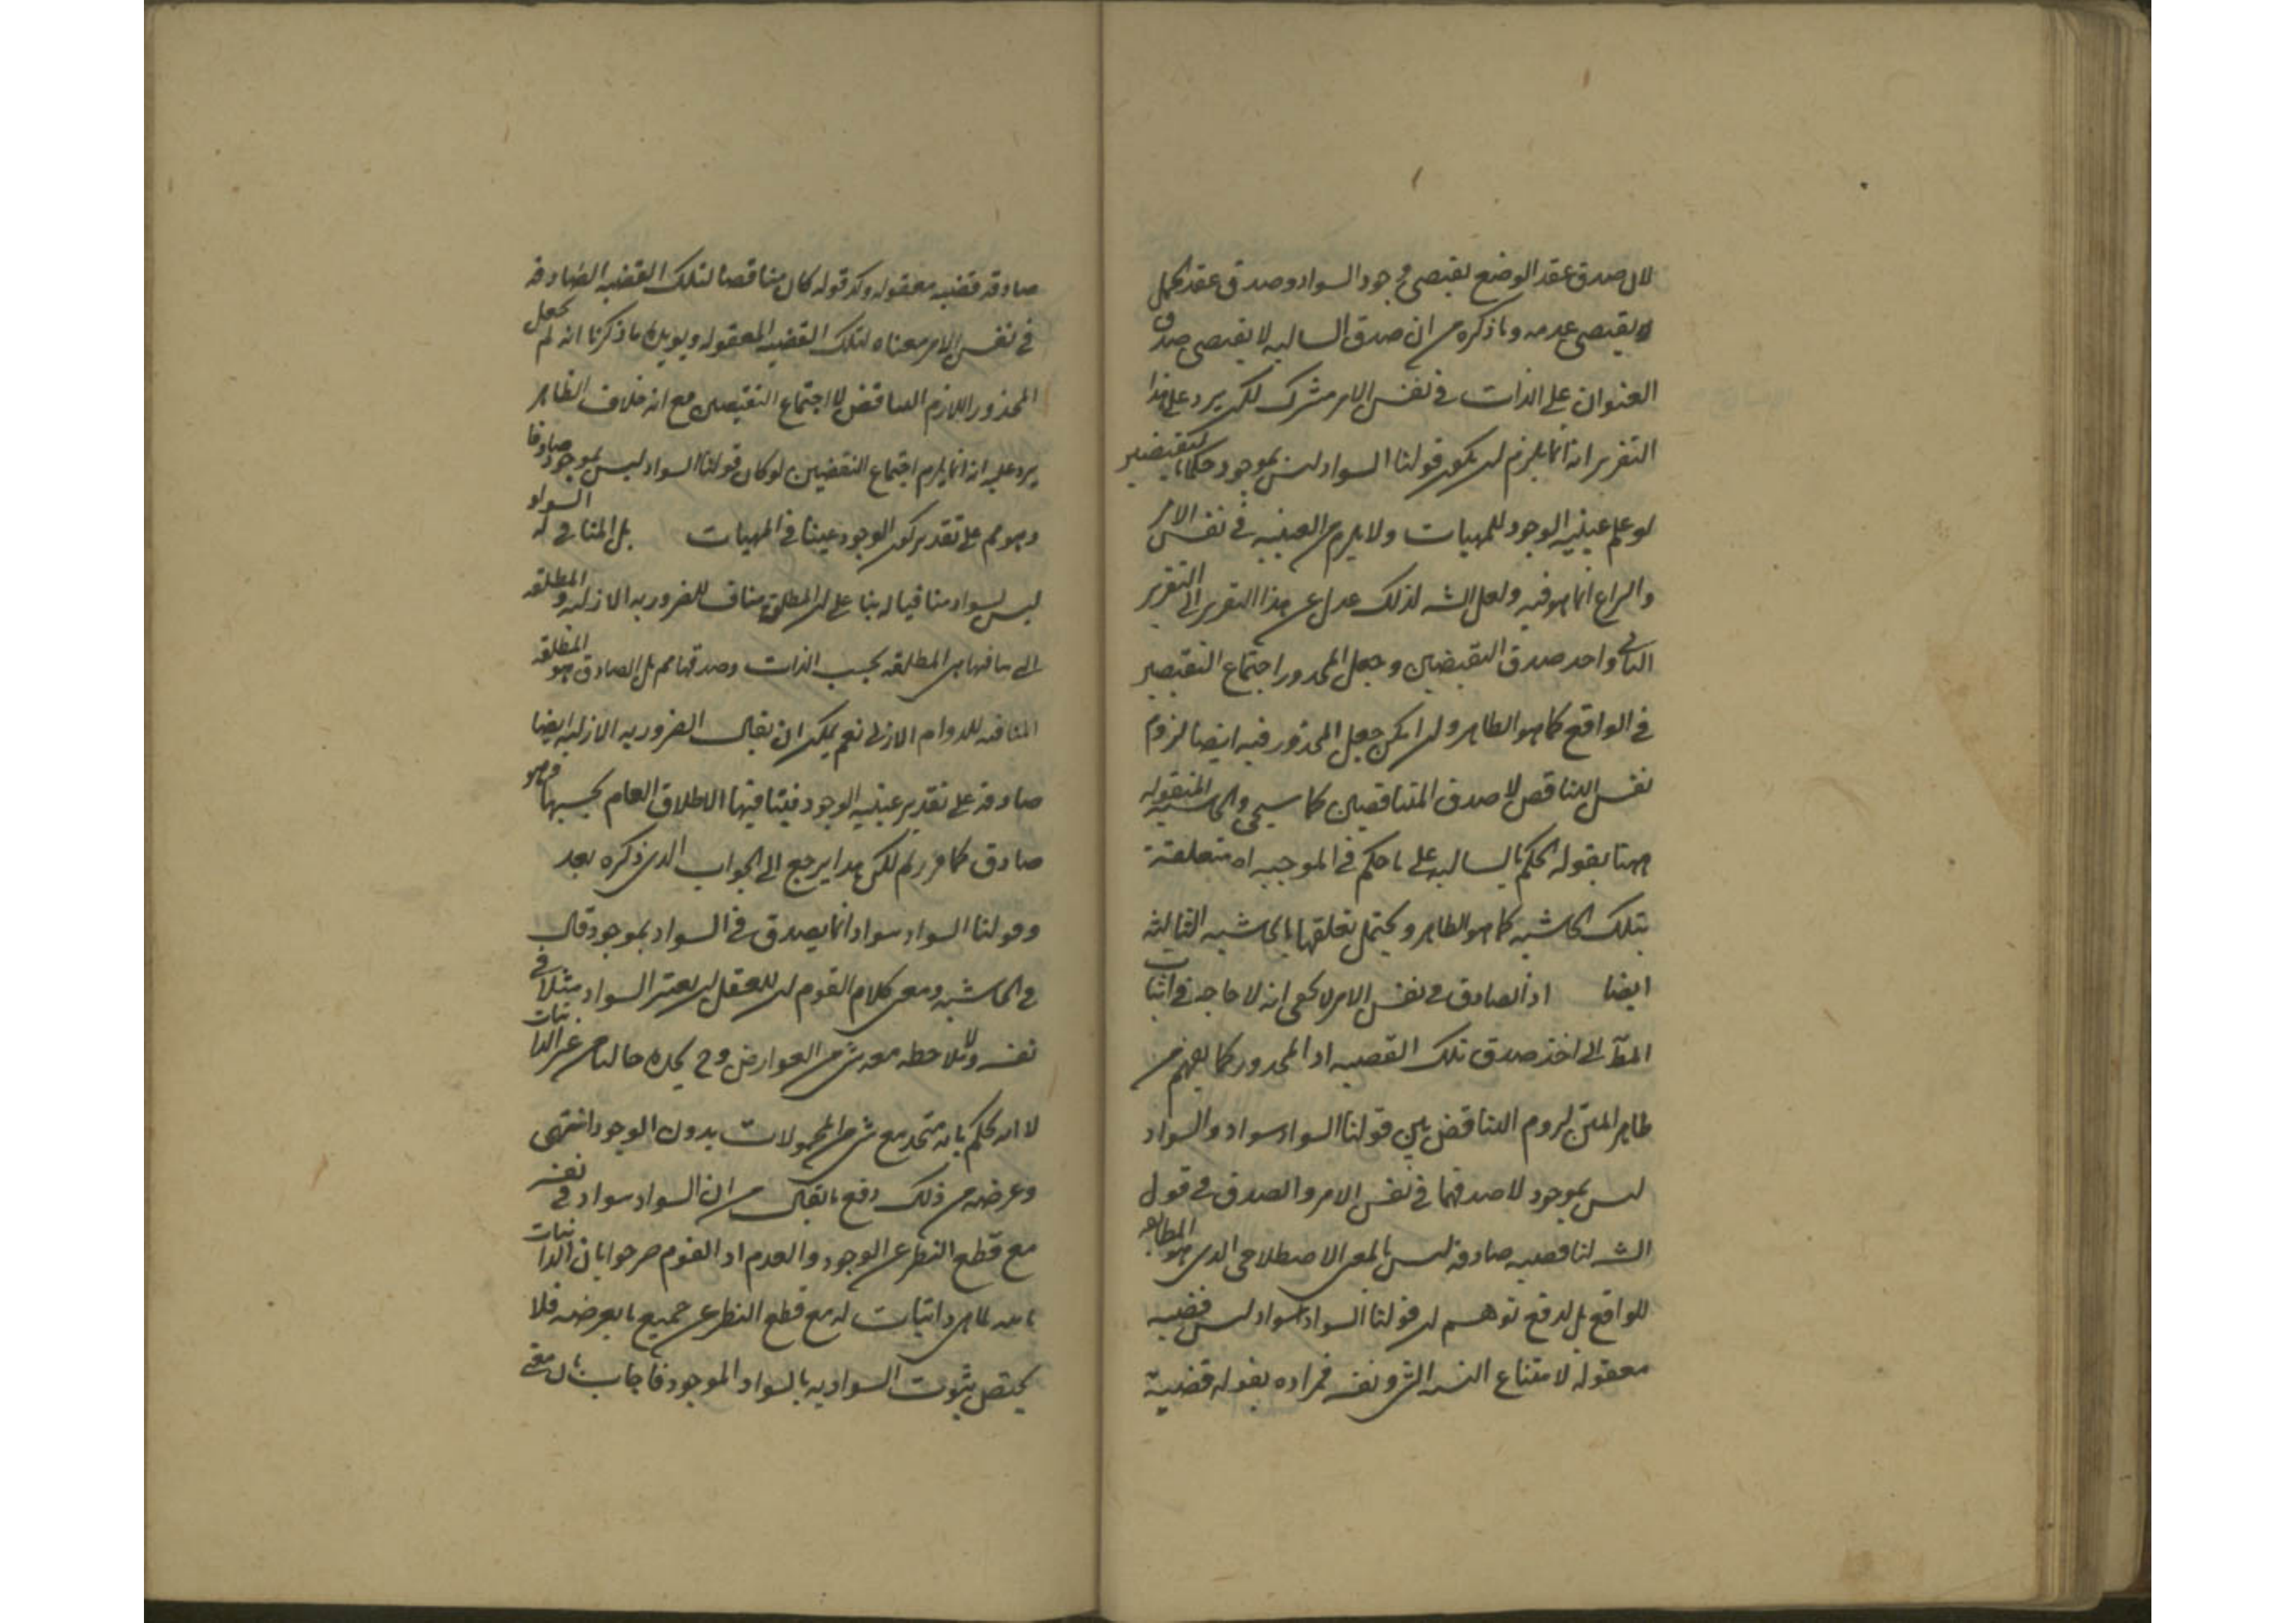 لان صدق عقد الوضع يقتضى وجود السواد وصدق عقد الحمل
يقتضى عدمه وما ذكره من ان صدق السالبه لا يقتضى صدق
العنوان على الذات فى نفس الامر مشترك لكن يرد على هذا
التقرير انه انما يلزم ان يكون قولنا السواد ليس بموجود حكما بالنقيضين
لو علم عينيه الوجود للمهيات ولا يلزم من العينيه فى نفس الامر
والنزاع انما هو فيه ولعل الشه لذلك عدل عن هذا التقرير الى التقرير
الثانى واخذ صدق النقيضين وجعل المحذور اجتماع النقيضين
فى الواقع كما هو الظاهر وان امكن جعل المحذور فيه ايضا لزوم
نفس التناقض لا صدق المتناقضين كما سيجئ والحاشيه المنقوله
ههنا بقوله الحكم بالسالبه على ما حكم فى الموجبه اه متعلقة
بتلك الحاشيه كما هو الظاهر ويحتمل تعلقها بالحاشيه الثالثه
ايضا اذ الصادق فى نفس الامر لا يخفى انه لا حاجه فى اثبات
المط الى اخذ صدق تلك القضيه اذ المحذور كما يفهم من
ظاهر المتن لزوم التناقض بين قولنا السواد سواد والسواد
ليس بموجود لا صدقهما فى نفس الامر والصدق فى قول
الشه لنا قضيه صادقه ليس بالمعنى الاصطلاحى الذى هو المطابقه
للواقع بل لدفع توهم ان قولنا السواد سواد ليس قضيه
معقوله لامتناع النسبه بين الشئ ونفسه فمراده بقوله قضية
صادقه قضيه معقوله وكذ قوله كان مناقضا لتلك القضيه الصادقه
فى نفس الامر معناه لتلك القضيه المعقوله ويويده ما ذكرنا انه لم يجعل
المحذور اللازم التناقض لا اجتماع النقيضين مع انه خلاف الظاهر
يرد عليه انه انما يلزم اجتماع النقيضين لو كان قولنا السواد ليس بموجود صادقا
وهو مم على تقدير كون الوجود عينا فى المهيات بل المنافى له السواد
ليس بسواد منافيا له بنا على ان المطلق مناف للضروريه الازليه والمطلقه
التى ينافيها هى المطلقه بحسب الذات وصدقها مم بل الصادق هو المطلقه
المنافيه للدوام الازلى نعم يمكن ان يقال الضروريه الازليه ايضا
صادقه على تقدير عينيه الوجود فينافيها الاطلاق العام بحسبها فما هو
صادق كما مر لكن هذا يرجع الى الجواب الذى ذكره بعد
وقولنا السواد سواد انما يصدق فى السواد بموجود قال
فى الحاشيه ومعنى كلام القوم ان للعقل ان يعتبر السواد مثلا فى
نفسه ولا يلاحظه معه شئ من العوارض وح يجده خاليا من غير الذاتيات
لا انه يحكم بانه متحد مع شئ من المحمولات بدون الوجود انتهى
وغرضه من ذلك دفع ما يقال من ان السواد سواد فى نفسه
مع قطع النظر عن الوجود والعدم اذ القوم صرحوا بان الذاتيات
ثابته للماهيه واثبات له مع قطع النظر عن جميع ما يعرضه فلا
يختص بثبوت السواديه بالسواد الموجود فاجاب بان معنى